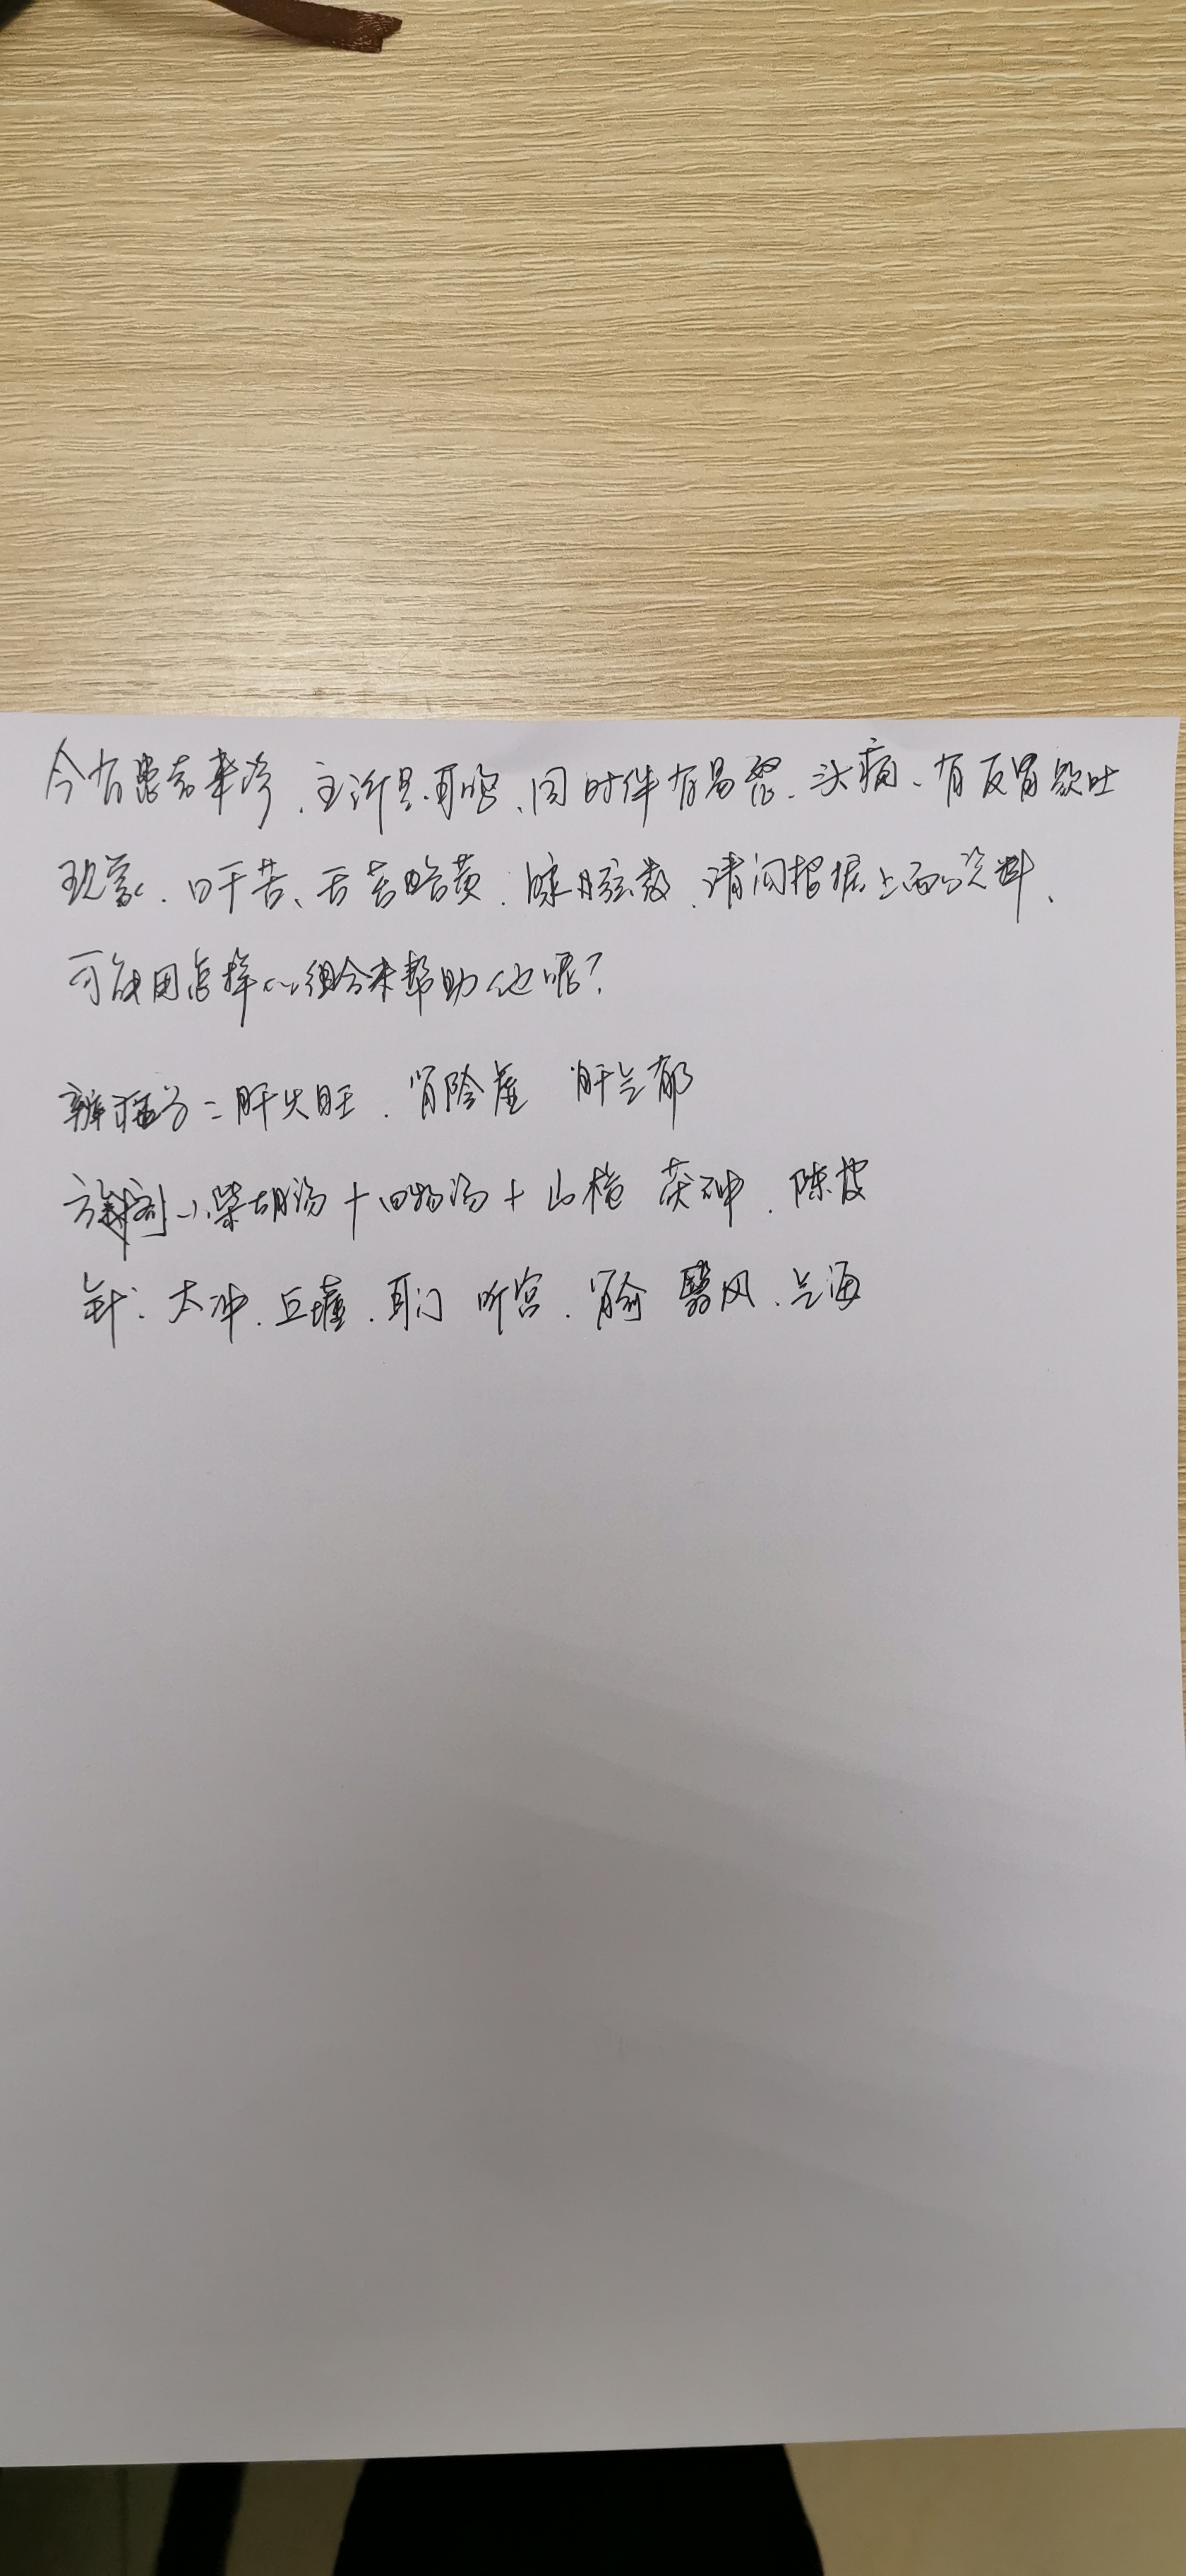 今有患者来诊、主诉是耳鸣、同时伴有易怒、头痛、有反胃欲吐
现象、口干苦、舌苔略黄、脉弦数、请问根据上面的资料、
可能用怎样的组合来帮助他呢?
辨证为:肝火旺、肾阴虚 肝气郁
方剂 小柴胡汤+四物汤+山楂 茯神、陈皮
针:太冲、丘墟、耳门 听宫、肾俞 翳风、气海